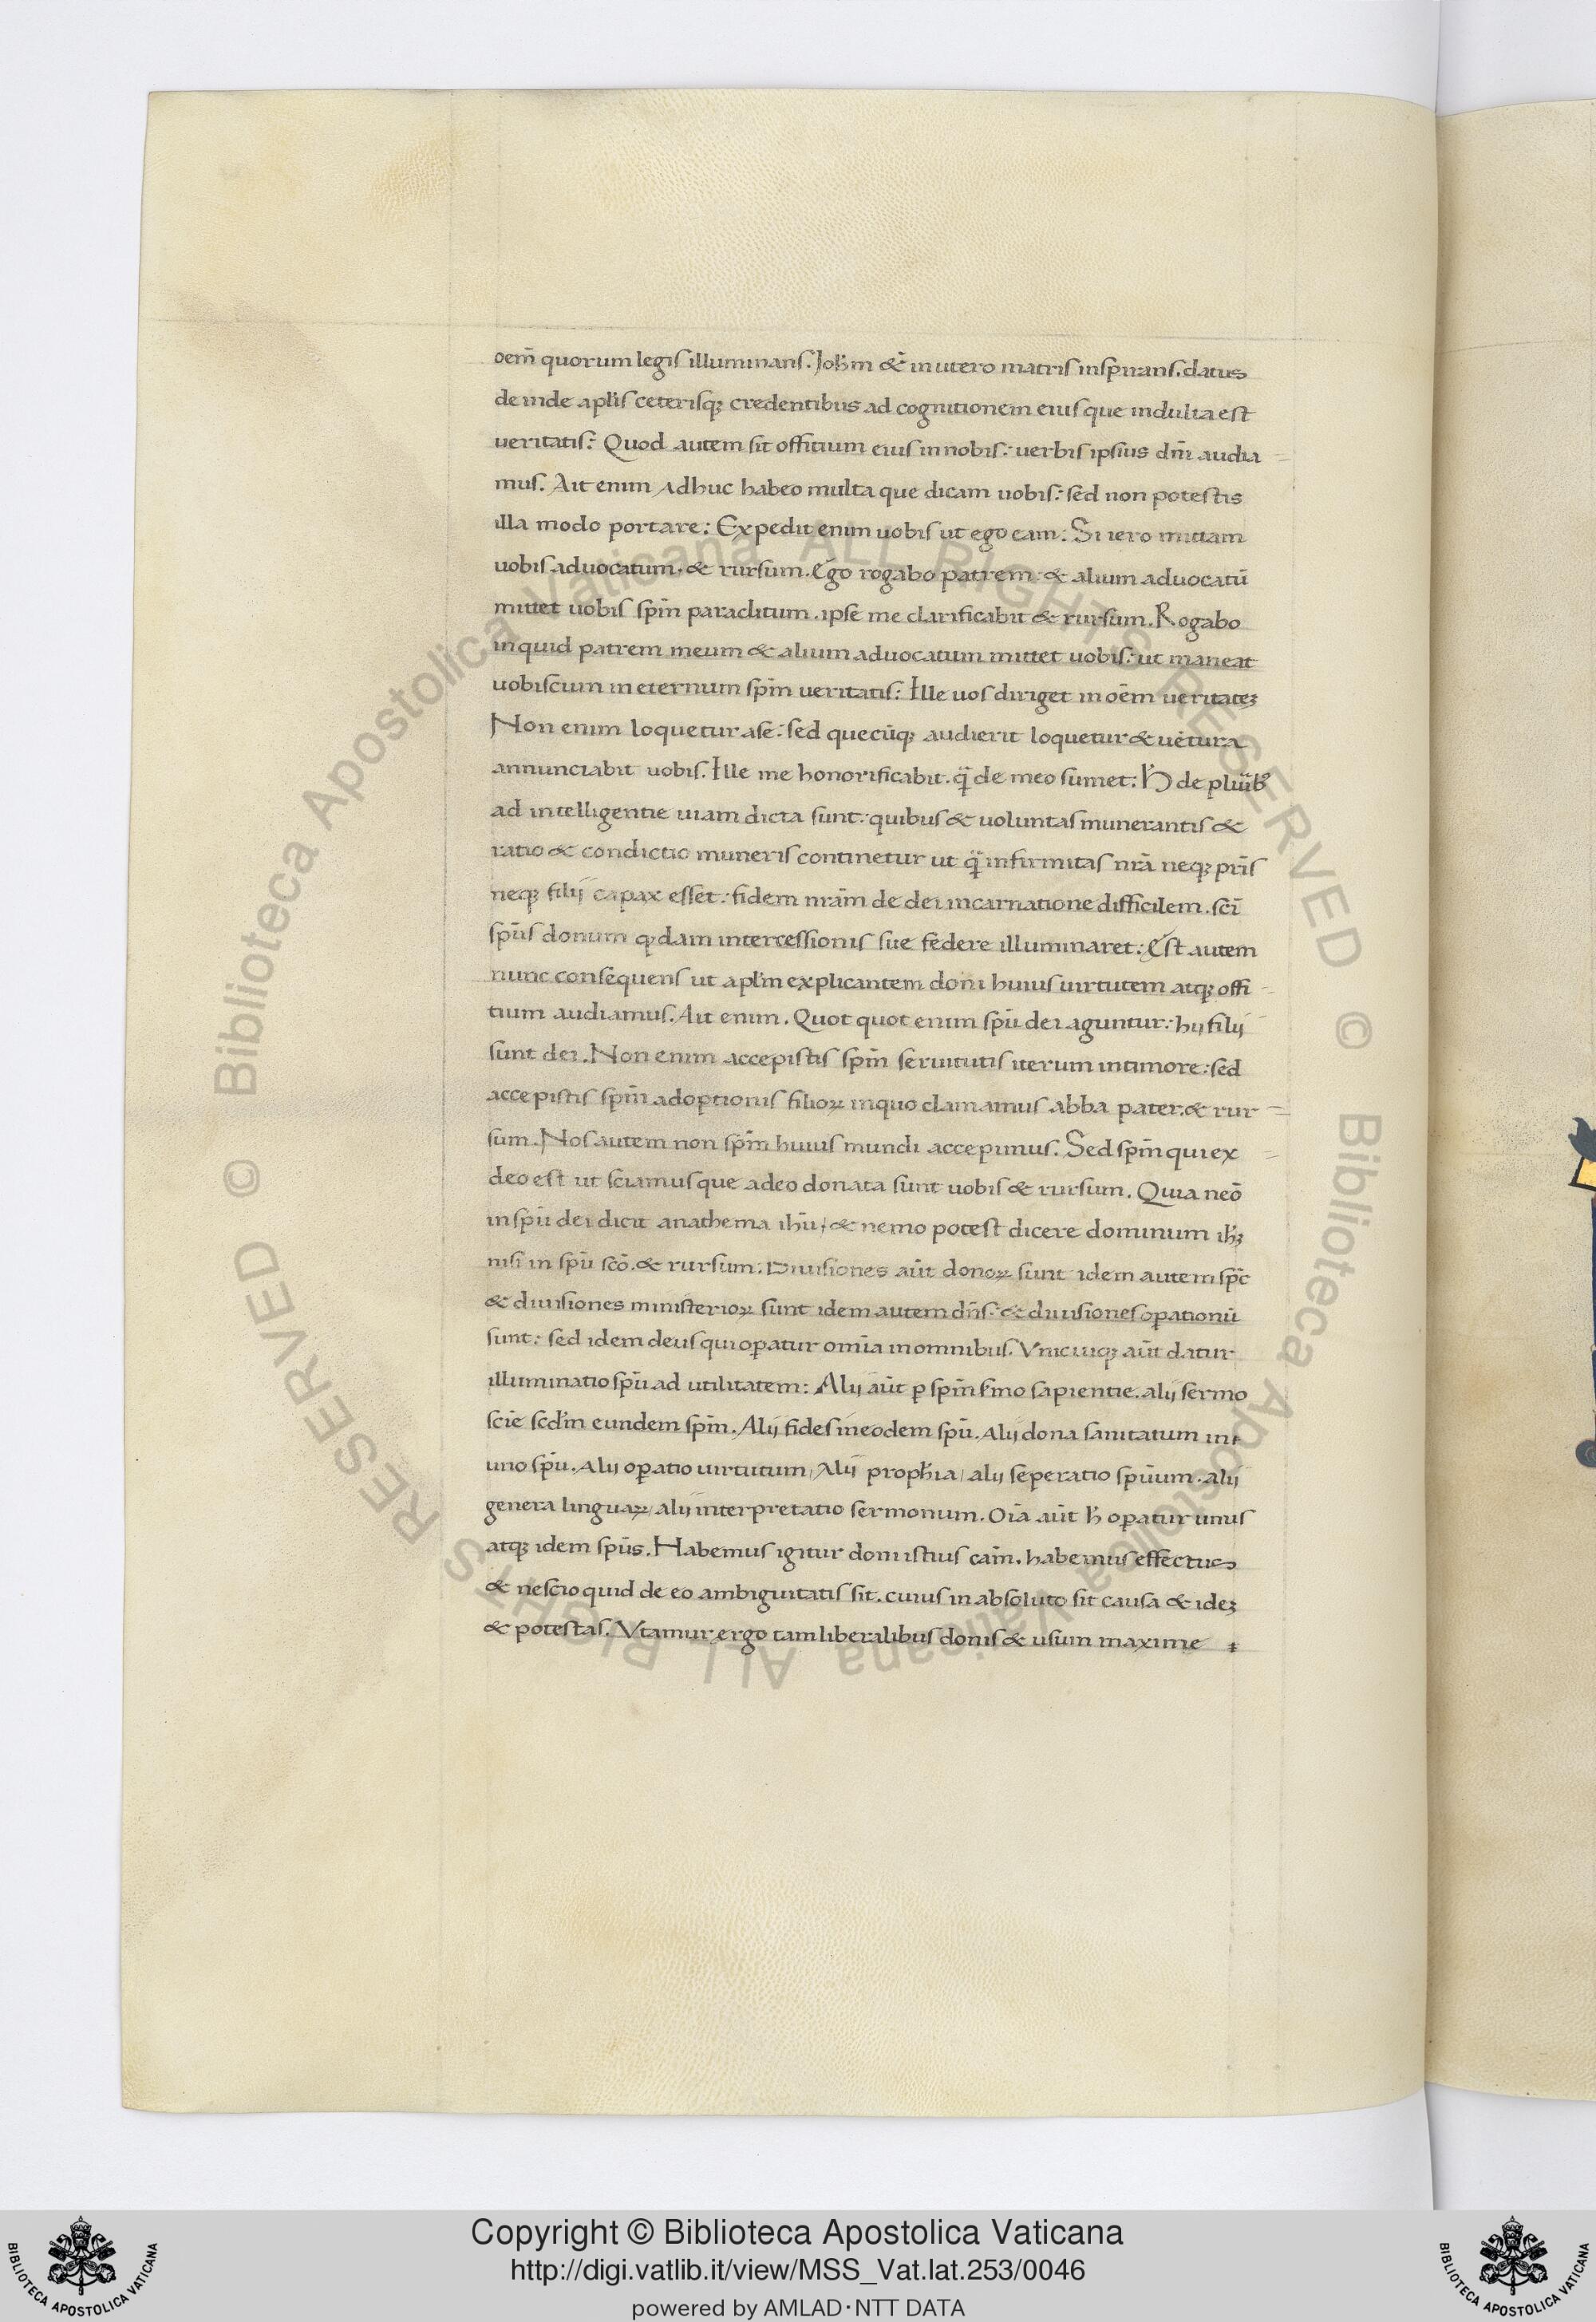 oem̄ quorum legis illuminans. Joh̄m &̄ in utero matris inspirans. datus
deinde apl̄is ceterisq; credentibus ad cognitionem eius que indulta est
veritatis: Quod autem sit offitium eius in nobis: uerbis ipsius dn̄i audia
mus. Ait enim Adhuc habeo multa que dicam uobis: sed non potestis
illa modo portare: Expedit enim uobis ut ego eam: Si iero mittam
uobis aduocatum. & rursum. Ego rogabo patrem: & alium aduocatū
mittet uobis sp̄m paraclitum. ipse me clarificabit & rursum. Rogabo
inquid patrem meum & alium aduocatum mittet uobis: ut maneat
uobiscum in eternum sp̄m veritatis: Ille uos diriget in oēm ueritateȝ
Non enim loquetur a se: sed quecūq; audierit loquetur & uētura
annunciabit uobis. Ille me honorificabit. q̄ de meo sumet: H̄ de plurib᾽
ad intelligentie uiam dicta sunt: quibus & uoluntas munerantis &
ratio & condictio muneris continetur ut q̄ infirmitas nr̄a neq; pr̄is
neq; filij capax esset: fidem nr̄am de dei incarnatione difficilem. sc̄i
sp̄us donum q;dam intercessionis sue federe illuminaret: Est autem
nunc consequens ut apl̄m explicantem doni huius uirtutem atq; offi
tium audiamus. Ait enim. Quot quot enim sp̄u dei aguntur: hij filij
sunt dei. Non enim accepistis sp̄m seruitutis iterum in timore: sed
accepistis sp̄m adoptionis filioꝝ in quo clamamus abba pater. & rur
sum. Nos autem non sp̄m huius mundi accepimus. Sed sp̄m qui ex
deo est ut sciamus que a deo donata sunt uobis & rursum. Quia neō
in sp̄u dei dicit anathema ihū, & nemo potest dicere dominum ih̄ȝ
nisi in sp̄u scō. & rursum. Diuisiones aūt donoꝝ sunt idem autem sp̄c
& diuisiones ministerioꝝ sunt idem autem dn̄s: & diuisiones oꝑationū
sunt: sed idem deus qui oꝑatur omīa in omnibus. Vnicuiq; aūt datur
illuminatio sp̄u ad utilitatem: Alij aūt ꝑ sp̄m s̄mo sapientie. alij sermo
sciē scd̄m eundem sp̄m. Alij fides in eodem sp̄u. Alij dona sanitatum in
uno sp̄u. Alij oꝑatio uirtutum, Alij proph̄ia, alij seperatio sp̄uum. alij
genera linguaꝝ, alij interpretatio sermonum. Oīa aūt h̄ oꝑatur unus
atq; idem sp̄us. Habemus igitur doni istius cām. habemus effectus
& nescio quid de eo ambiguitatis sit. cuius in absoluto sit causa & ideȝ
& potestas. Vtamur ergo tam liberalibus donis & usum maxime
Copyright © Biblioteca Apostolica Vaticana
http://digi.vatlib.it/view/MSS_Vat.lat.253/0046
powered by AMLAD·NTT DATA
BIBLIOTECA APOSTOLICA VATICANA
BIBLIOTECA APOSTOLICA VATICANA
© Biblioteca Apostolica Vaticana ALL RIGHTS RESERVED
© Biblioteca Apostolica Vaticana ALL RIGHTS RESERVED